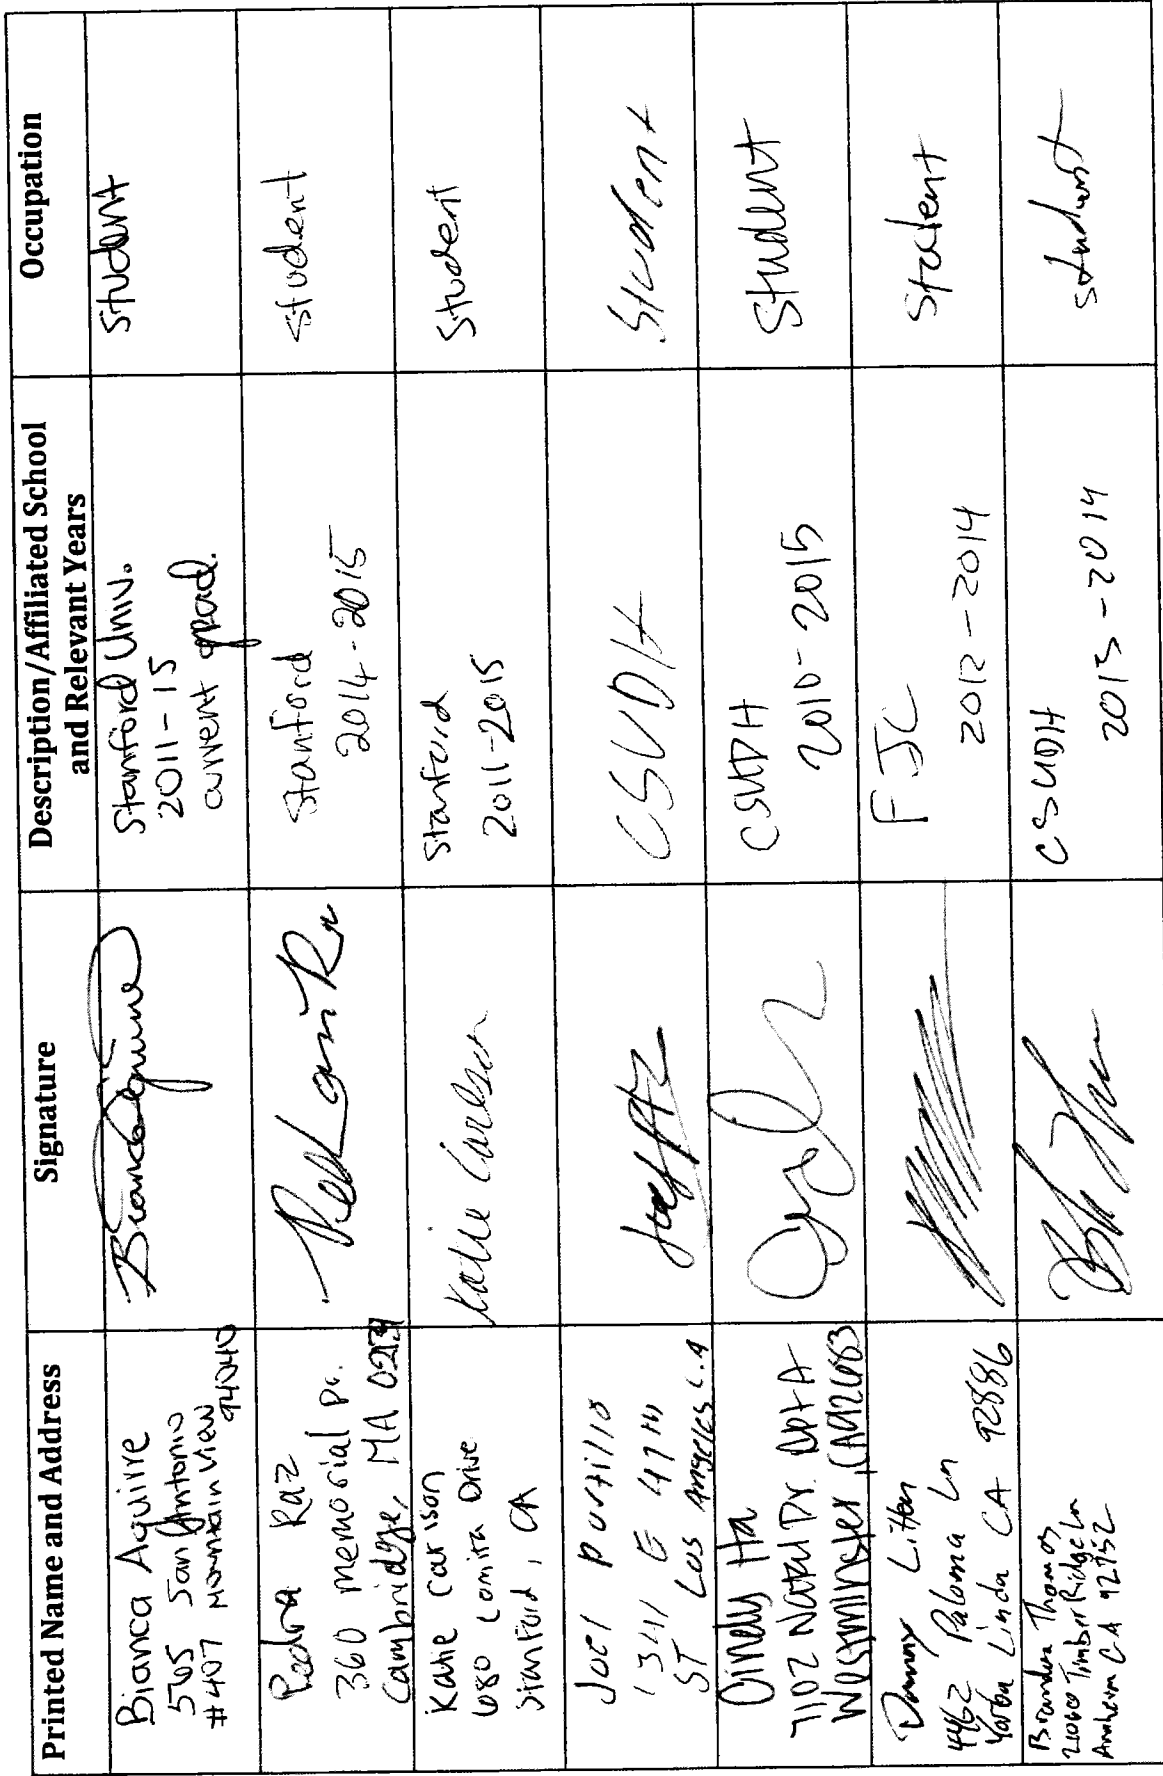 Printed Name and Address
Signature
Description/Affiliated School
and Relevant Years
Occupation
Bianca Aguirre
565 San Antonio
#407 Mountain View
94040
Stanford Univ.
2011-15
current grad.
Student
Raz
360 memorial Dr.
Cambridge, MA
Stanford
2014-2015
Student
Katie Carlson
680 Lomita Drive
Stanford, CA
Katie Carlson
Stanford
2011-2015
Student
Joel Portillo
1341 E 41TH
ST Los Angeles C.A
CSUDH
Student
Ha
7102 Natal Dr. Apt A
Westminster, CA 92683
CSUDH
2010-2015
Student
Danny Litton
4462 Paloma Ln
Yorba Linda CA 92886
FJC
2012-2014
Student
Brandon Thomas
Timber Ridge Ln
Anaheim CA
CSUDH
2013-2014
student